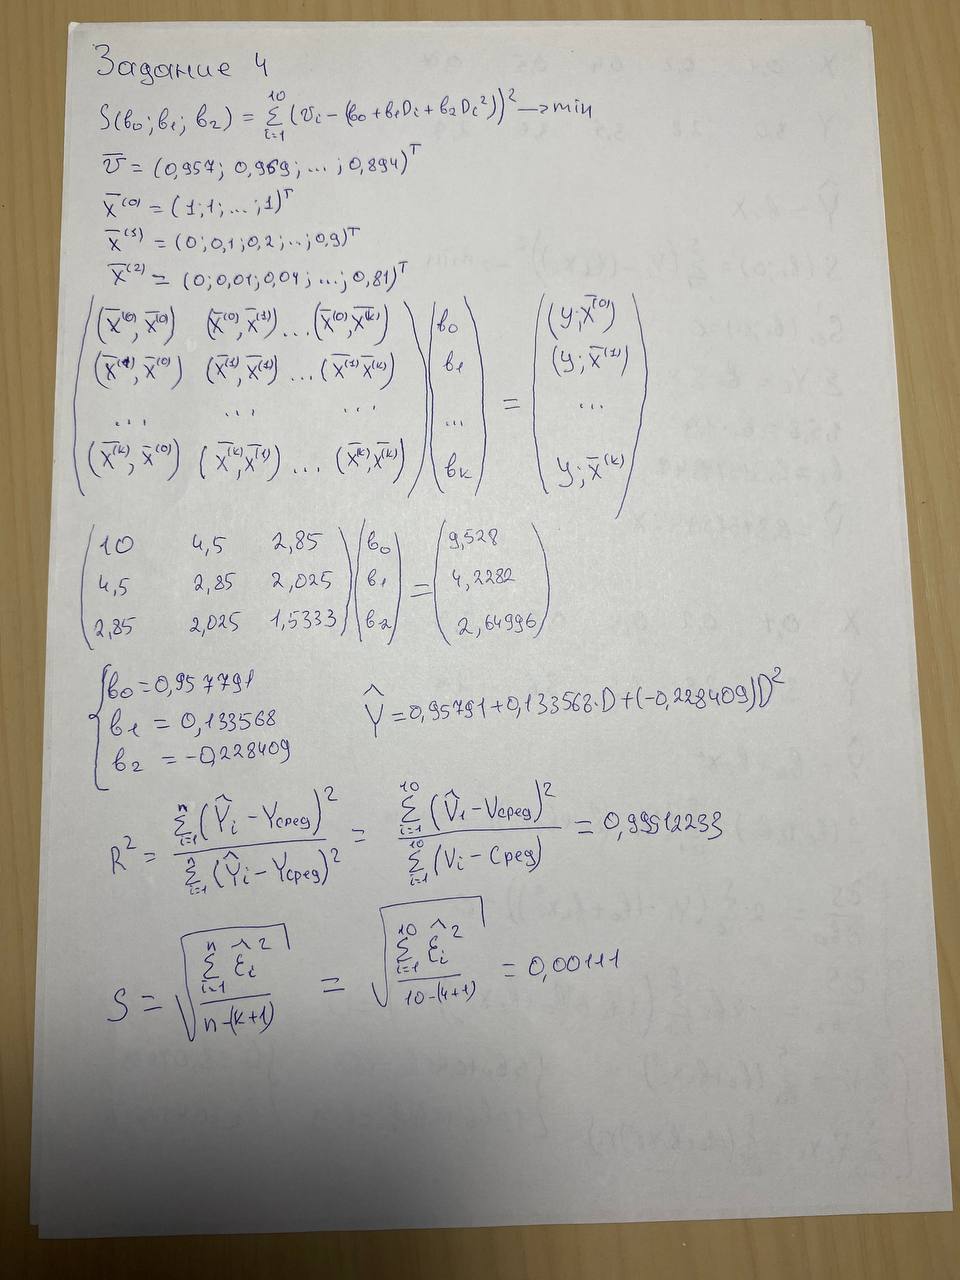 Задание 4
S(b₀; b₁; b₂) = Σ_{i=1}^{10} (v_i − (b₀ + b₁D_i + b₂D_i²))² → min
v̅ = (0,957; 0,969; ...; 0,894)^T
x̅^(0) = (1; 1; ...; 1)^T
x̅^(1) = (0; 0,1; 0,2; ..; 0,9)^T
x̅^(2) = (0; 0,01; 0,04; ...; 0,81)^T
(x̅^(0), x̅^(0)) (x̅^(0), x̅^(1)) ... (x̅^(0), x̅^(k)) b₀ (y; x̅^(0))
(x̅^(1), x̅^(0)) (x̅^(1), x̅^(1)) ... (x̅^(1) x̅^(k)) b₁ (y; x̅^(1))
... ... ... ... = ...
(x̅^(k), x̅^(0)) (x̅^(k), x̅^(1)) ... (x̅^(k) x̅^(k)) b_k y; x̅^(k)
10 4,5 2,85 b₀ 9,528
4,5 2,85 2,025 b₁ = 4,2282
2,85 2,025 1,5333 b₂ 2,64996
b₀ = 0,957791
b₁ = 0,133568
b₂ = −0,228409
Ŷ = 0,95791 + 0,133568·D + (−0,228409)D²
R² = Σ_{i=1}^{n} (Ŷ_i − Yсред)² / Σ_{i=1}^{n} (Ŷ_i − Yсред)² = Σ_{i=1}^{10} (V̂_i − Vсред)² / Σ_{i=1}^{10} (V_i − Сред) = 0,99512233
S = √(Σ_{i=1}^{n} ε̂_i² / n−(k+1)) = √(Σ_{i=1}^{10} ε̂_i² / 10−(4+1)) = 0,00111